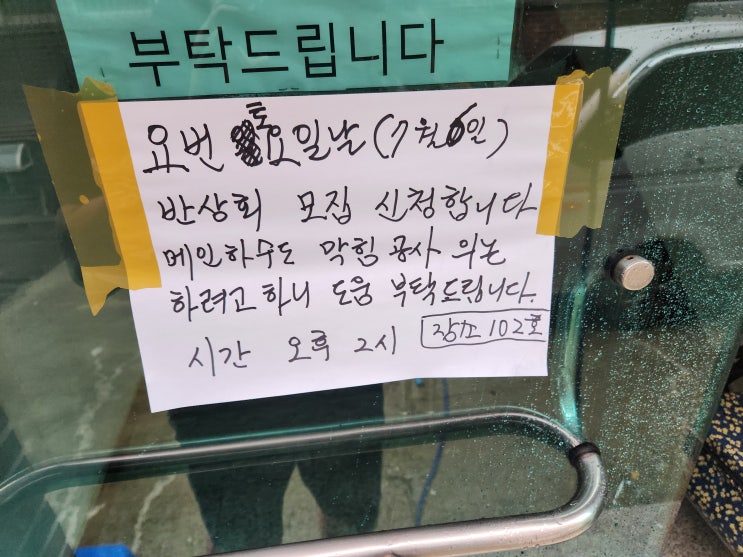 부탁드립니다
요번 토요일날 (7월 6일)
반상회 모집 신청합니다
메인하수도 막힘 공사 의논
하려고 하니 도움 부탁드립니다.
시간 오후 2시 장소 102호